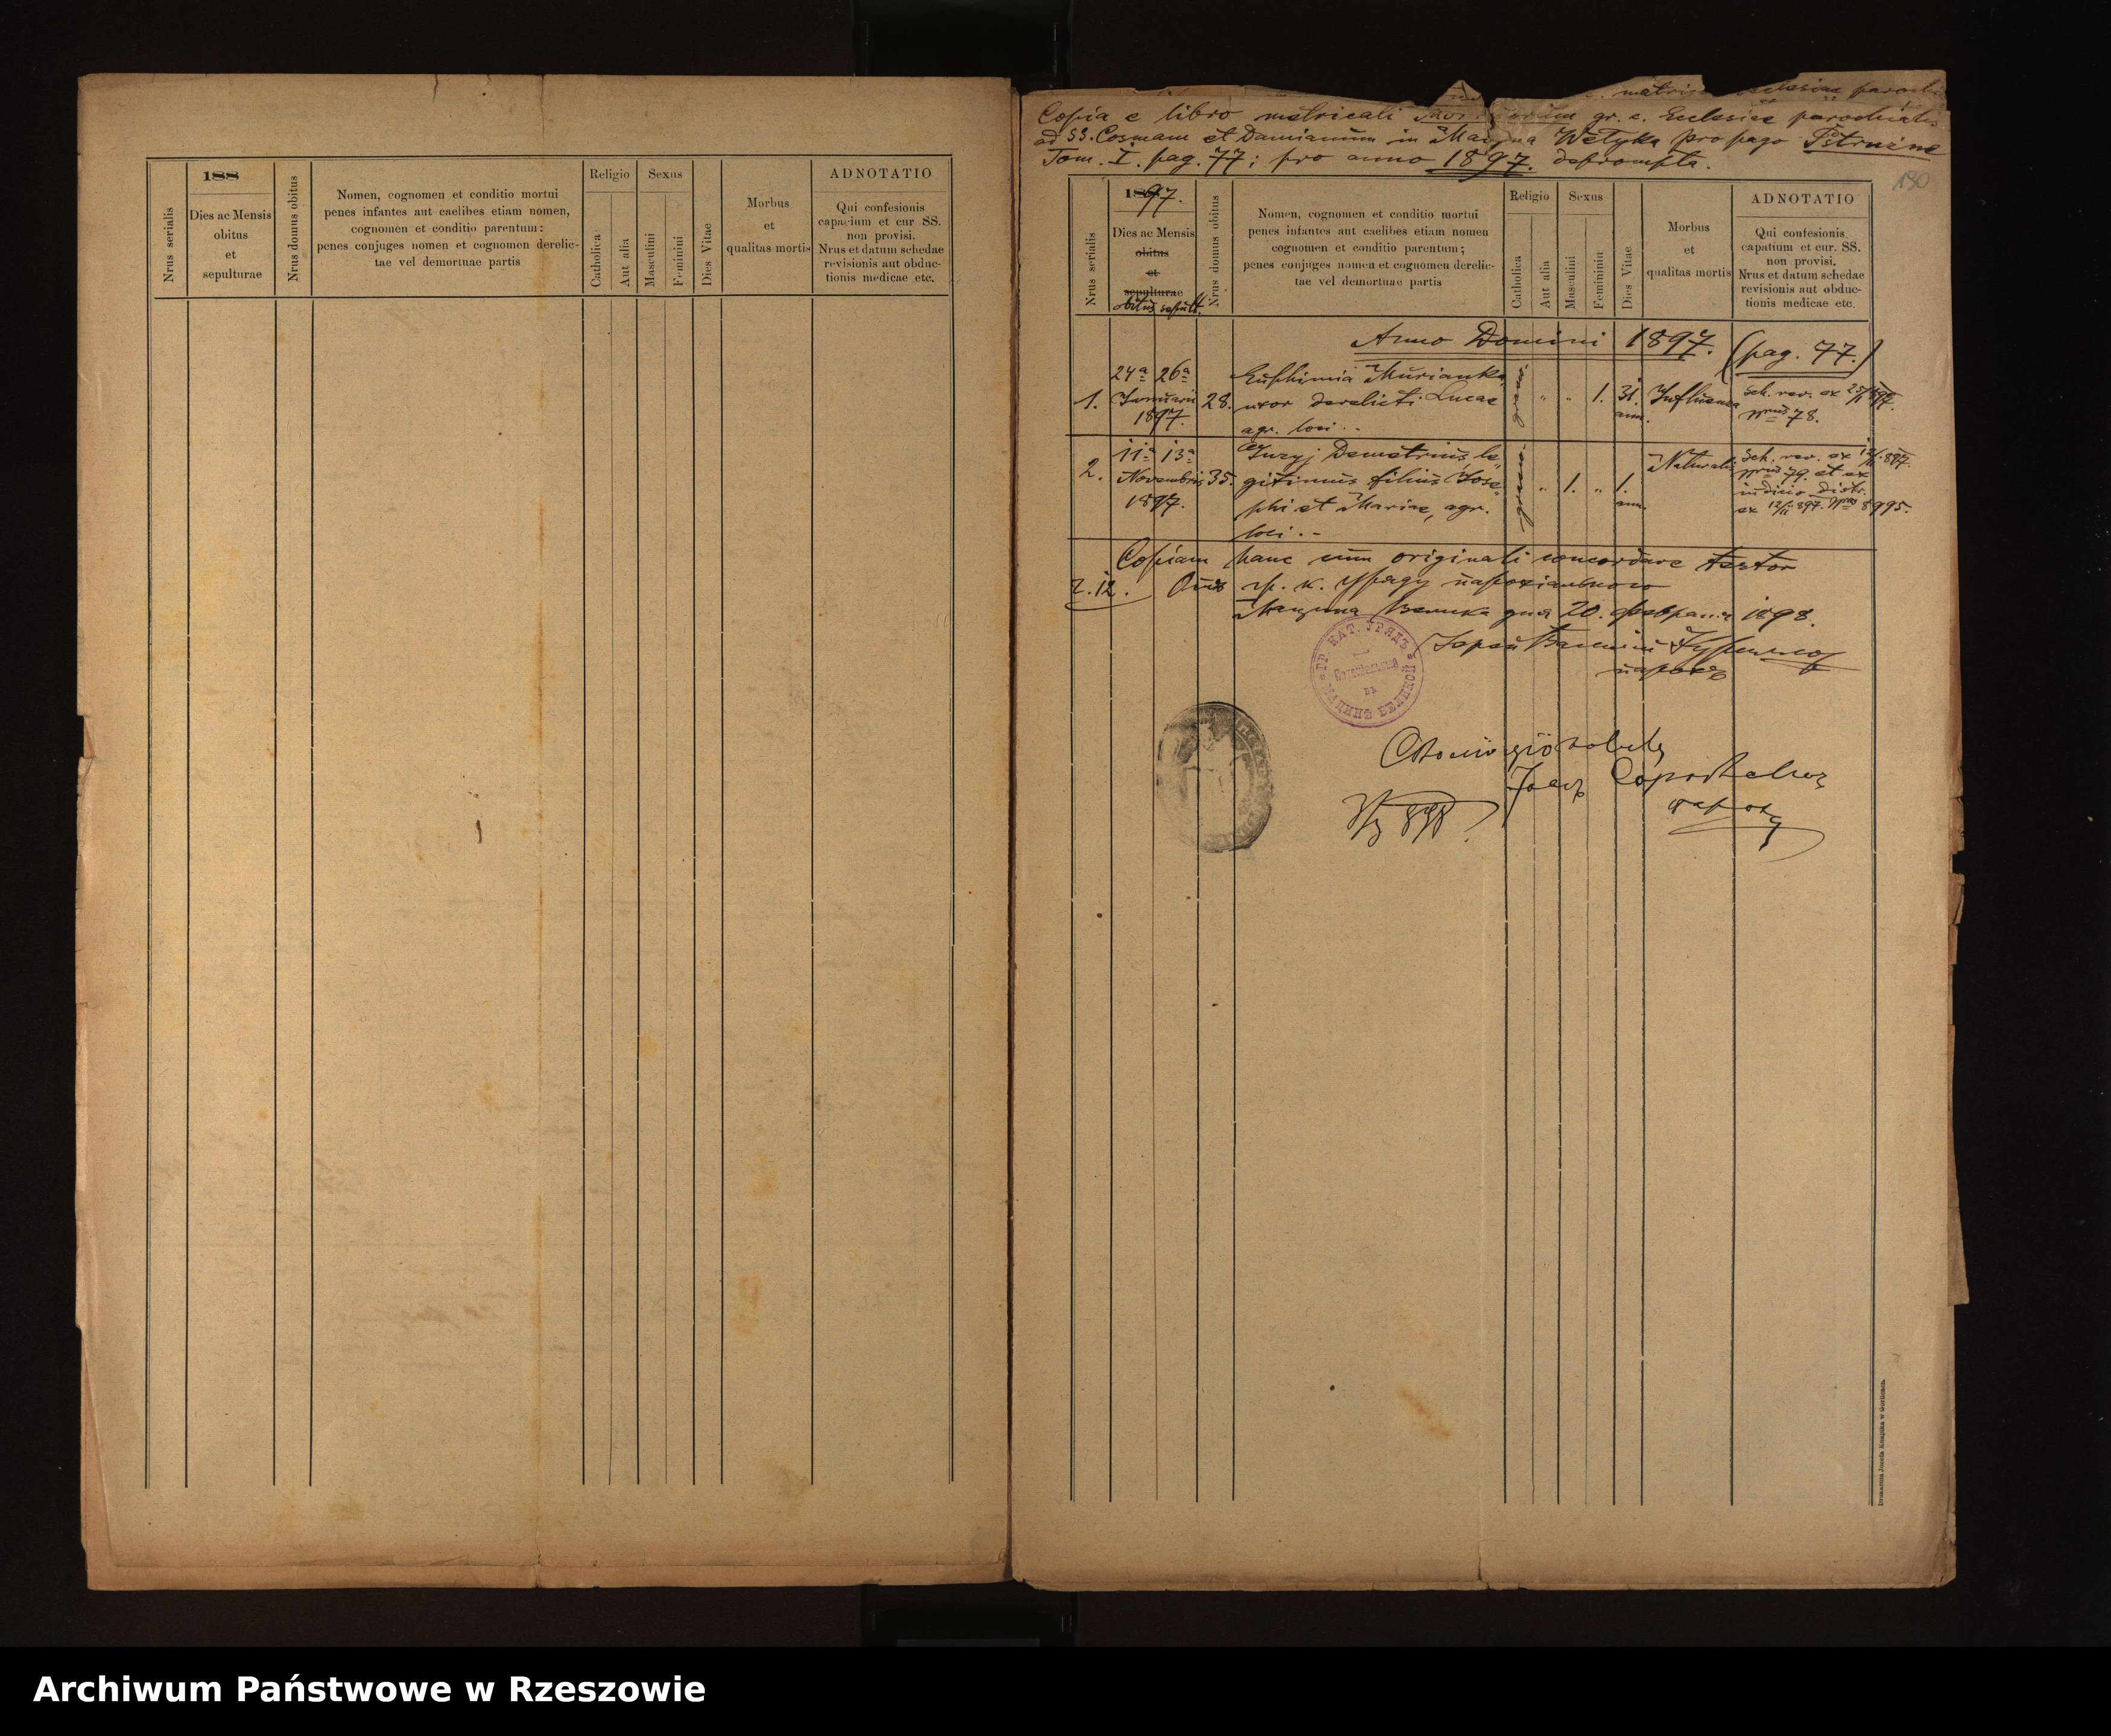 188
Nrus serialis
Dies ac Mensis
obitus
et
sepulturae
Nrus domus obitus
Nomen, cognomen et conditio mortui
penes infantes aut caelibes etiam nomen,
cognomen et conditio parentum:
penes conjuges nomen et cognomen derelic-
tae vel demortuae partis
Religio
Catholica
Aut alia
Sexus
Masculini
Feminini
Dies Vitae
Morbus
et
qualitas mortis
ADNOTATIO
Qui confesionis
capacium et cur SS.
non provisi.
Nrus et datum schedae
revisionis aut obduc-
tionis medicae etc.
Copia e libro metricali gr. c. Ecclesiae parochialis
ad SS. Cosmam et Damianum in Wełyka pro pago Pstrużne
Tom. I. pag. 77; pro anno 1897. deprompta.
190
Nrus serialis
1897.
Dies ac Mensis
obitus
et
sepulturae
obitus sepult.
Nrus domus obitus
Nomen, cognomen et conditio mortui
penes infantes aut caelibes etiam nomen
cognomen et conditio parentum;
penes conjuges nomen et cognomen derelic-
tae vel demortuae partis
Religio
Catholica
Aut alia
Sexus
Masculini
Feminini
Dies Vitae
Morbus
et
qualitas mortis
ADNOTATIO
Qui confesionis
capatium et cur. SS.
non provisi.
Nrus et datum schedae
revisionis aut obduc-
tionis medicae etc.
Anno Domini 1897. (pag. 77.)
24a 26a Euphimia Murianka
1. Januarii 28. uxor derelicti Lucae " " 1. 31. Influenza Sch. rev. ex
1897. agr. loci. - ann. 78.
11a 13a Demetrius le-
2. Novembris 35. gitimus filius Jose- " 1. " 1. Naturalis Sch. rev. ex 79 et ex
1897. phi et Mariae, agr. ann.
loci. - ex 12/11 897. 8995.
Copiam hanc cum originali concordare testor
Ч. 12. Отъ гр. к. Уряду парохіального
Мацина Велика дня 20. Февраля 1898.
парохъ
ГР. КАТ. УРЯДЪ
въ
МАЦИНѢ ВЕЛИКОЙ
898
Drukarnia Józefa Knapika w Gorlicach.
Archiwum Państwowe w Rzeszowie